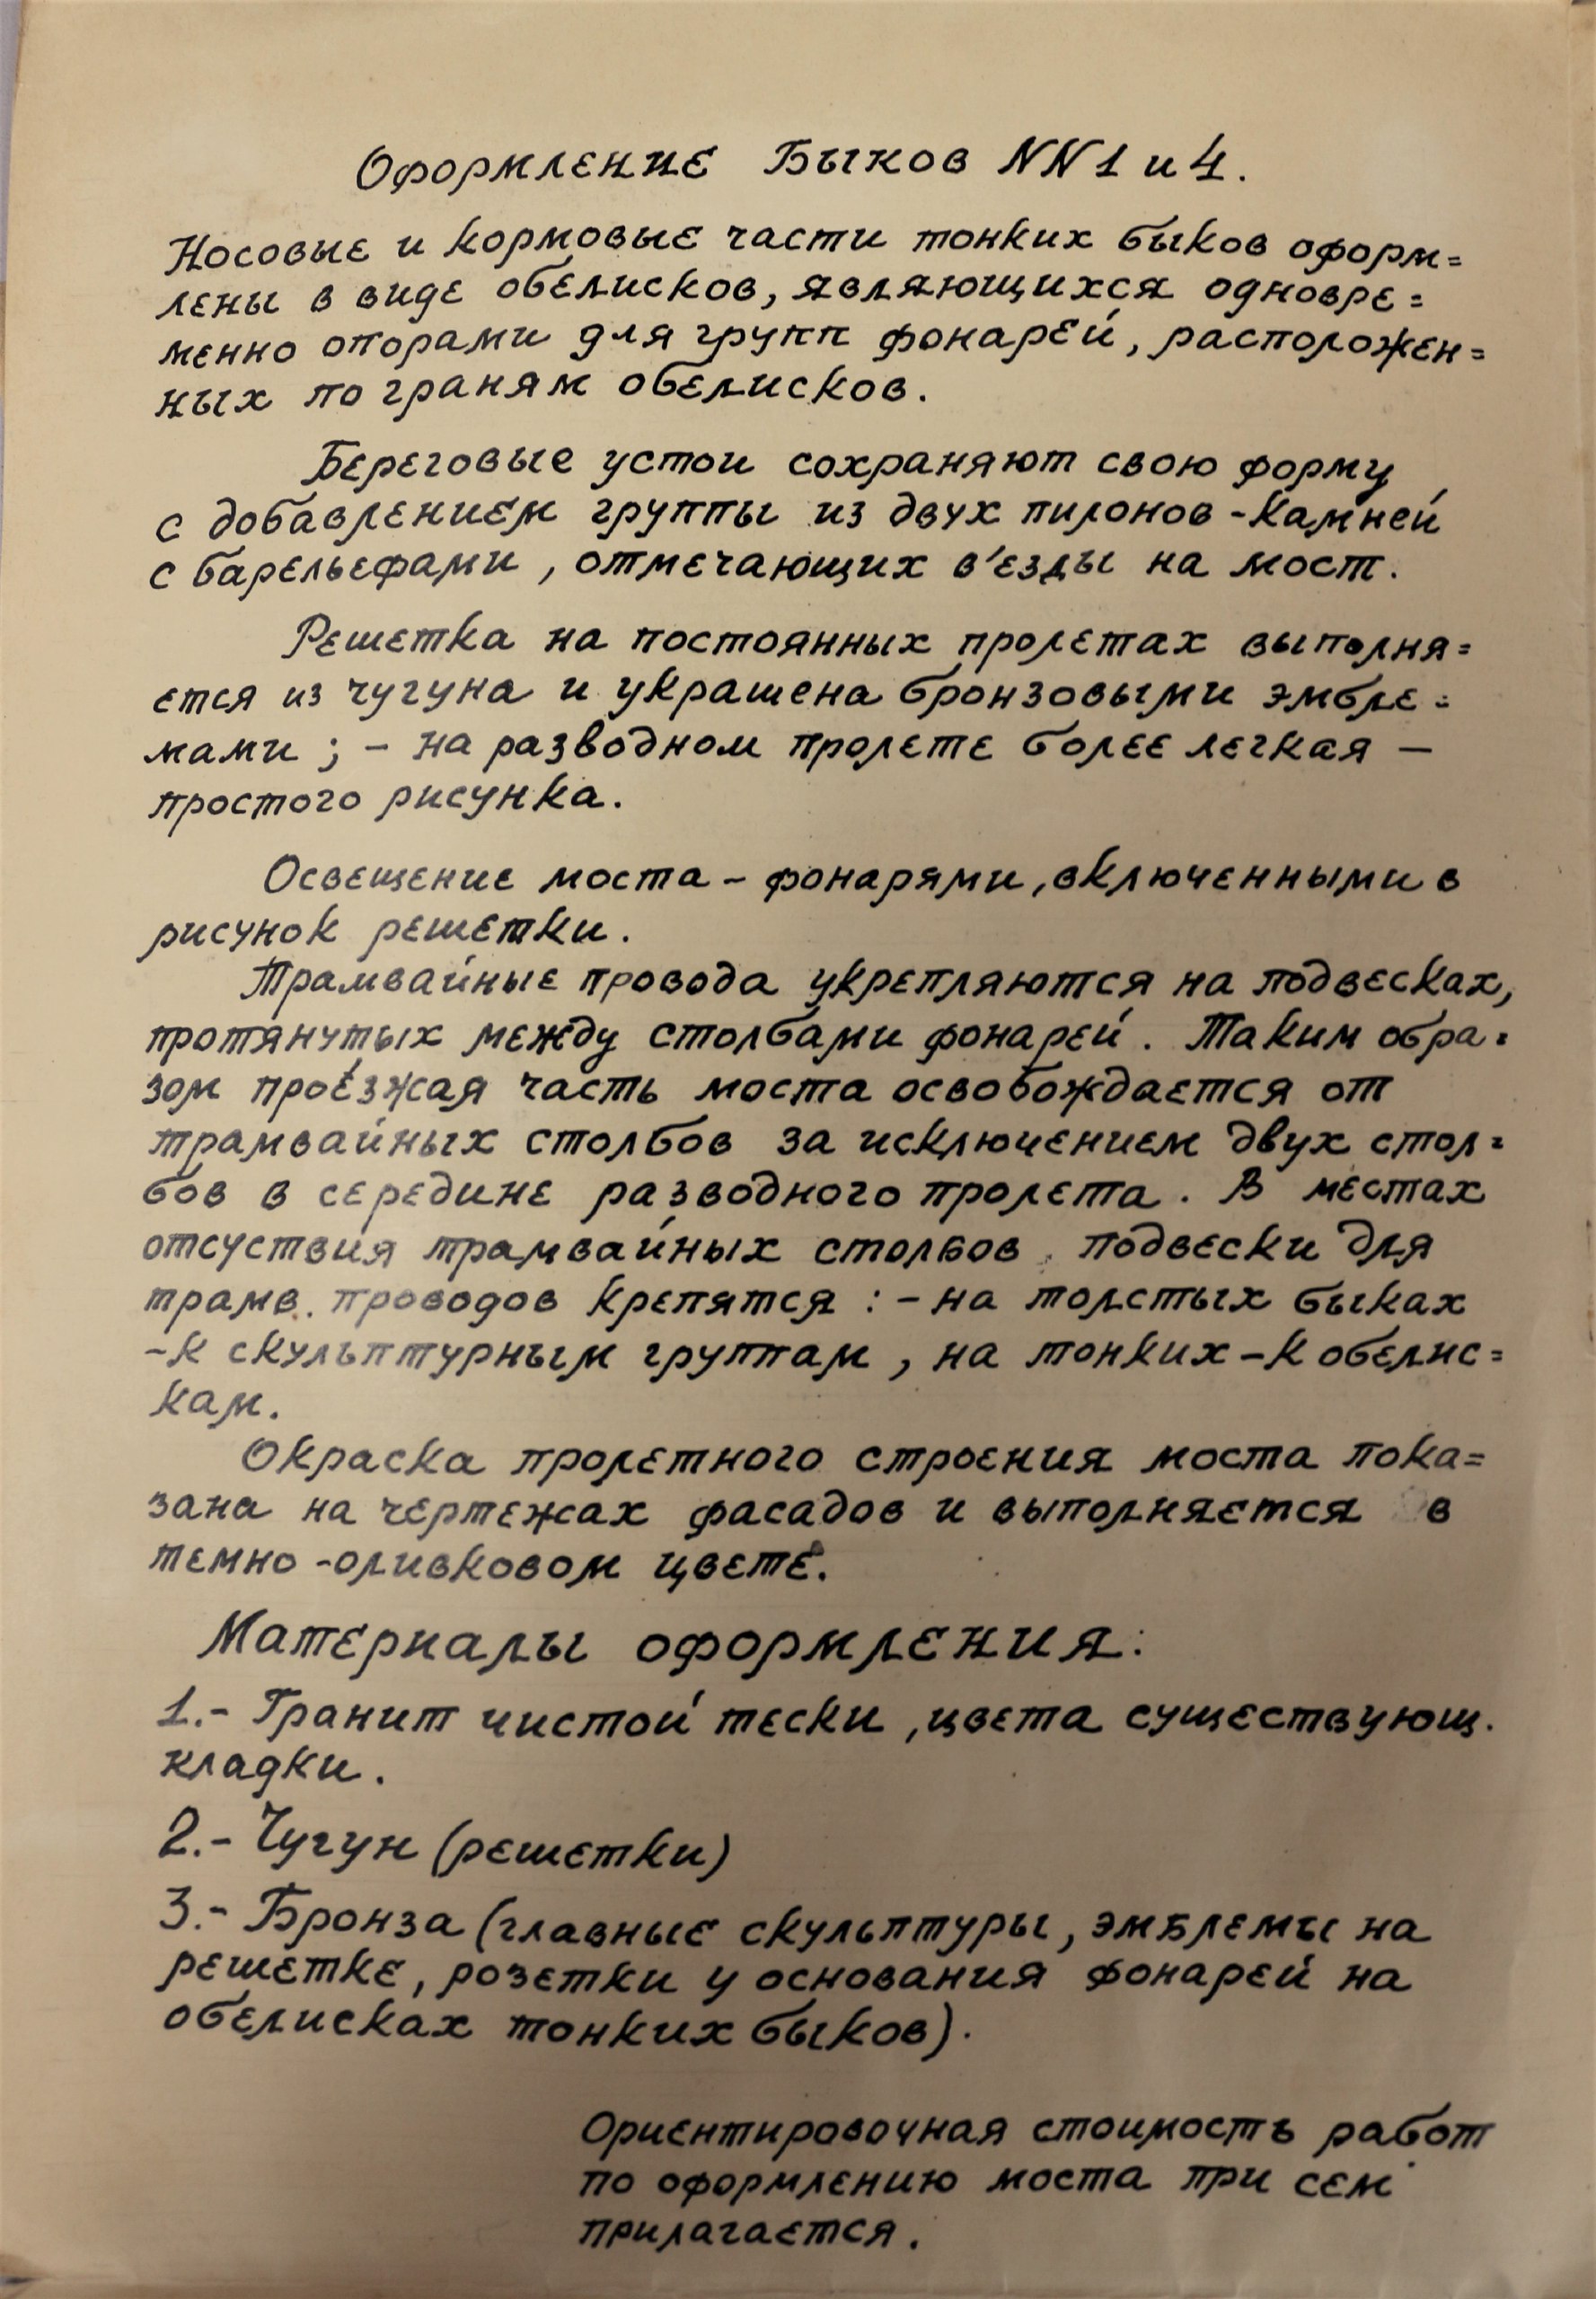 Оформление Быков NN 1 и 4.
Носовые и кормовые части тонких быков оформ=
лены в виде обелисков, являющихся одновре=
менно опорами для групп фонарей, расположен=
ных по граням обелисков.
Береговые устои сохраняют свою форму
с добавлением группы из двух пилонов-камней
с барельефами, отмечающих в'езды на мост.
Решетка на постоянных пролетах выполня=
ется из чугуна и украшена бронзовыми эмбле=
мами; - на разводном пролете более легкая —
простого рисунка.
Освещение моста - фонарями, включенными в
рисунок решетки.
Трамвайные провода укрепляются на подвесках,
протянутых между столбами фонарей. Таким обра=
зом проезжая часть моста освобождается от
трамвайных столбов за исключением двух стол=
бов в середине разводного пролета. В местах
отсуствия трамвайных столбов, подвески для
трамв. проводов крепятся: - на толстых быках
- к скульптурным группам, на тонких - к обелис=
кам.
Окраска пролетного строения моста пока=
зана на чертежах фасадов и выполняется в
темно-оливковом цвете.
Материалы оформления:
1.- Гранит чистой тески, цвета существующ.
кладки.
2.- Чугун (решетки)
3.- Бронза (главные скульптуры, эмблемы на
решетке, розетки у основания фонарей на
обелисках тонких быков).
Ориентировочная стоимость работ
по оформлению моста при сем
прилагается.